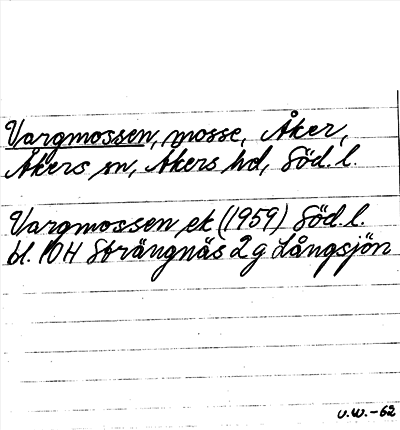 Vargmossen, mosse, Åker,
Åkers sn, Åkers hd, Söd. l.
Vargmossen ek (1959) Söd. l.
bl. 10H Strängnäs 2g Långsjön
U.W.-62